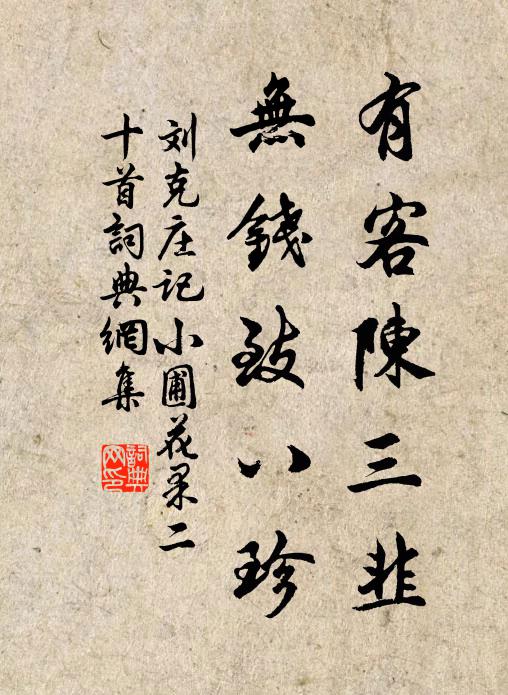 有客陳三韭
無錢致八珍
刘克庄记小圃花果二
十首詞典網集
詞典网印